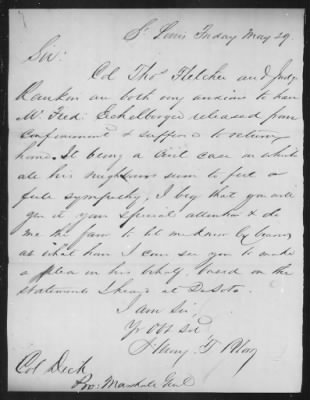 St Louis Friday May 29
Sir:
Col Thos Fletcher and Judge
Rankin are both very anxious to have
Mr Fred: Echelberger released from
confinement & suffered to return
home. It being a civil case in which
all his neighbours seem to feel a
full sympathy, I beg that you will
give it your special attention & do
me the favor to let me know by bearer
at what hour I can see you to make
a plea in his behalf based on the
statements I heard at DeSoto.
I am Sir,
Yr Obt Svt
Henry T
Col Dick
Pro: Marshal Genl